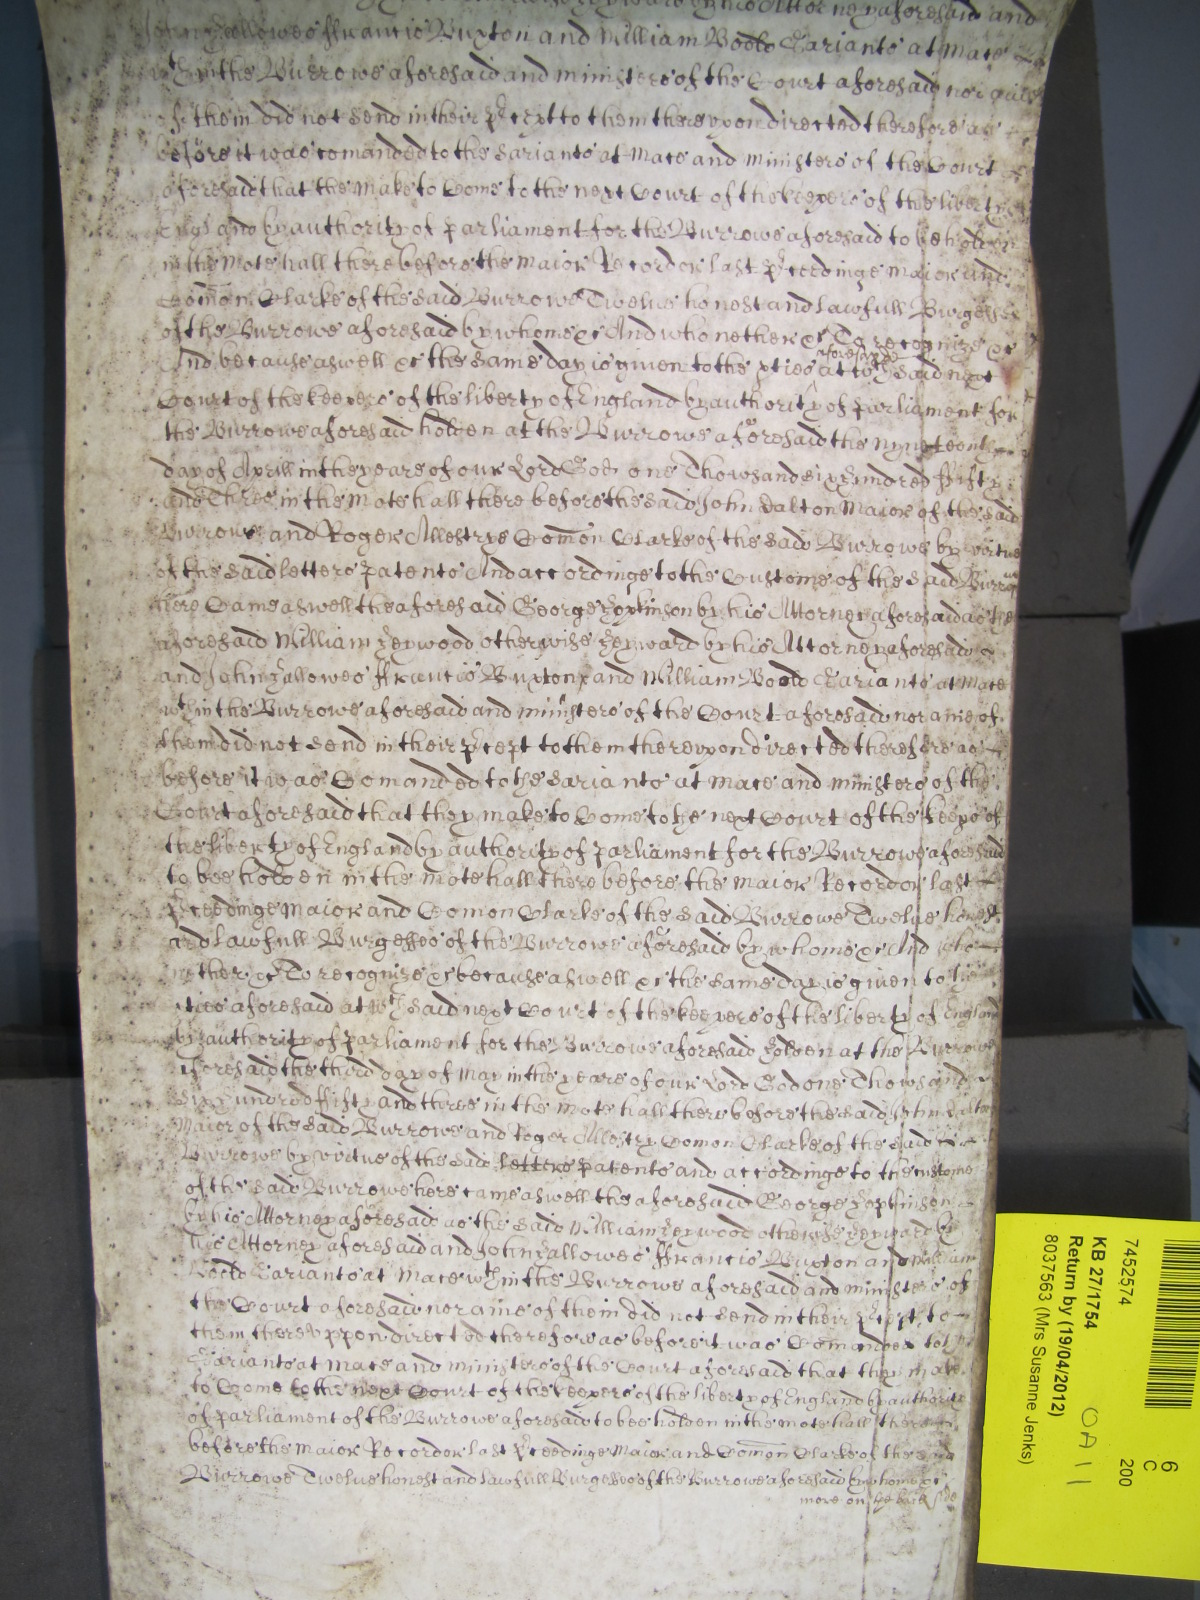 by his Attorney aforesaid and
John Hallowes ffrancis Buxton and William Boold Sariants at Mace
wthin the Burrowe aforesaid and ministers of the Court aforesaid nor
of them did not send in their p̱cept to them thereupon directed therefore as
before it was comanded to the Sariants at Mace and Ministers of the Court
aforesaid that the make to Come to the next Court of the keepers of the liberty
England by authority of parliament for the Burrowe aforesaid to be holden
in the Mote hall there before the Maior Recordor last p̱ceedinge Maior and
Comon Clarke of the said Burrowe Twelve honest and lawfull Burgesses
of the Burrowe aforesaid by whome &c And who nether &c To recognize &c
And because aswell &c the same day is given to the pties aforesayd at wch said next
Court of the keepers of the liberty of England by authority of parliament for
the Burrowe aforesaid holden at the Burrowe aforesaid the Nyneteenth
day of Aprill in the yeare of our Lord God one Thowsand six hundred ffifty
and Three in the Mote hall there before the said John Dalton Maior of the said
Burrowe and Roger Allestrye Comon Clarke of the said Burrowe by virtue
of the said letters patents And accordinge to the Custome of the said Burrow
here Came aswell the aforesaid George Hopkinson by his Attorney aforesaid as the
aforesaid William Heywood otherwise Heyward by his Attorney aforesaid
and John Hallowes ffrancis Buxton and William Boold Sariants at Mace
wthin the Burrowe aforesaid and ministers of the Court aforesaid nor anie of
them did not send in their p̱cept to them thereupon directed therefore as
before it was Comanded to the Sariants at Mace and ministers of the
Court aforesaid that they make to Come to the next Court of the keeps of
the liberty of England by authority of parliament for the Burrowe aforesaid
to bee holden in the Mote hall there before the Maior Recordor last
p̱ceedinge Maior and Comon Clarke of the said Burrowe Twelve honest
and lawfull Burgesses of the Burrowe aforesaid by whome &c And who
nether &c To recognize &c because aswell &c the same day is given to the
pties aforesaid at wch said next Court of the keepers of the liberty of England
by authority of parliament for the Burrowe aforesaid holden at the Burrowe
aforesaid the third day of May in the yeare of our Lord God one Thowsand
six hundred ffifty and three in the Mote hall there before the said John Dalton
Maior of the said Burrowe and Roger Allestry Comon Clarke of the said
Burrowe by virtue of the said letters patents and accordinge to the custome
of the said Burrowe here came aswell the aforesaid George Hopkinson
by his Attorney aforesaid as the said William Heywood otherwise Heyward by
his Attorney aforesaid and John Hallowes ffrancis Buxton and William
Boold Sariants at Mace wthin the Burrowe aforesaid and ministers of
the Court aforesaid nor anie of them did not send in their p̱cept to
them thereuppon directed therefore as before it was Comanded to the
Sariants at Mace and ministers of the Court aforesaid that they make
to Come to the next Court of the keepers of the liberty of England by authoritie
of parliament of the Burrowe aforesaid to bee holden in the mote hall there
before the Maior Recordor last p̱ceedinge Maior and Comon Clarke of the said
Burrowe Twelve honest and lawfull Burgesses of the Burrowe aforesaid by whome &c
more on the back side
6
C
200
7452574
KB 27/1754
OA 11
Return by (19/04/2012)
8037563 (Mrs Susanne Jenks)